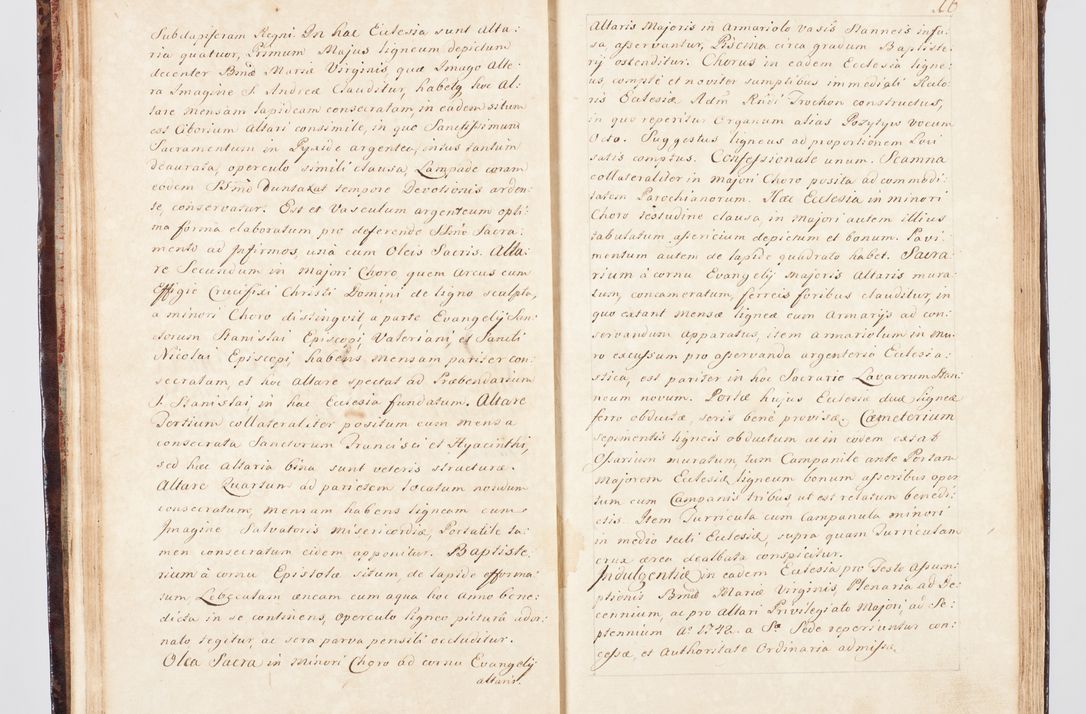 Subdapiferam Regni In hac Ecclesia sunt Alta:
ria quatuor, Primum Majus ligneum depictum
decenter Bmæ Mariæ Virginis, quæ Imago Alte:
ra Imagine S. Andreæ Clauditur, habetq hoc Al:
tare Mensam lapideam consecratam, in eadem situm
est Ciborium Altari consimile, in quo Sanctissimum
Sacramentum in Pyxide argentea, intus tantum
deaurata, operculo simili clausa, Lampade coram
eodem SSmo duntaxat tempore Devotionis arden:
te, conservatur. Est et Vasculum argenteum opti:
ma forma elaboratum pro deferendo SSmo Sacra:
mento ad Infirmos, unà cum Oleis Sacris. Alta:
re Secundum in Majori Choro, quem Arcus cum
Effigie Crucifixi Christi Domini de ligno sculpta,
a minori Choro distinguit, a parte Evangelij San:
ctorum Stanislai Episcopi, Valeriani, et Sancti
Nicolai Episcopi, habens Mensam pariser con:
secratam, et hoc Altare spectat ad Præbendarium
S. Stanislai, in hac Ecclesia fundatum. Altare
Tertium collateraliter positum cum mensa
consecrata Sanctorum Francisci et Hyacinthi,
sed hæc altaria bina sunt veteris structuræ.
Altare Quartum ad parietem locatum nondum
consecratum, mensam habens ligneam cum
Imagine Salvatoris Misericordiæ, Portatile ta:
men consecratum eidem apponitur. Baptiste:
rium à cornu Epistolæ situm, de lapide efforma:
tum, Lebetatam æneam cum aqua hoc anno bene:
dicta in se continens, operculo ligneo picturâ ador:
nato, tegitur, ac sera parva pensili occluditur.
Olea Sacra in Minori Choro ad cornu Evangelij
altaris.
16
Altaris Majoris in Armariolo Vasis Stanneis infu:
sa asservantur, Piscina circa gradum Baptiste:
rij ostenditur. Chorus in eadem Ecclesia ligne:
us, compté et noviter sumptibus immediati Recto:
ris Ecclesiæ Adm Rndi Trochon constructus,
in quo reperitur Organum alias Pozytyw vocum
Octo. Suggestus ligneus ad proportionem Loci
satis comptus. Confessionale unum. Scamna
collateraliter in majori Choro posita ad commodi:
tatem Parochianorum. Hæc Ecclesia in minori
Choro testudine clausa in majori autem illius
tabulatum assericium depictum et bonum. Pavi:
mentum autem de lapide quadrato habet. Sacra:
rium à cornu Evangelij Majoris Altaris mura:
tum, concameratum, ferreis foribus clauditur, in
quo extant Mensæ ligneæ cum Armarijs ad con:
servandum apparatus, item armariolum in mu:
ro excussum pro asservanda argenterio Ecclesia:
stica, est pariter in hoc Sacrario Lavacrum Stan:
neum novum. Portæ hujus Ecclesiæ duæ ligneæ
ferro obductæ seris bené provisæ. Cæmeterium
sepimentis ligneis obductum ac in eodem extat
Ossarium muratum, tum Campanile ante Portam
Majorem Ecclesiæ ligneum bonum asseribus oper:
tum cum Campanis tribus, ut est relatum benedi:
ctis. Item Turricula cum Campanula minori
in medio tecti Ecclesiæ, supra quam Turriculam
crux ærea dealbata conspicitur.
Indulgentiæ in eadem Ecclesia pro Festo Assum:
ptionis Bmæ Mariæ Virginis, Plenaria ad De:
cennium, ac pro Altari Privilegiato Majori, ad Se:
ptennium Ao 1742. a Sta Sede reperiuntur con:
cessæ, et Authoritate Ordinaria admissæ.